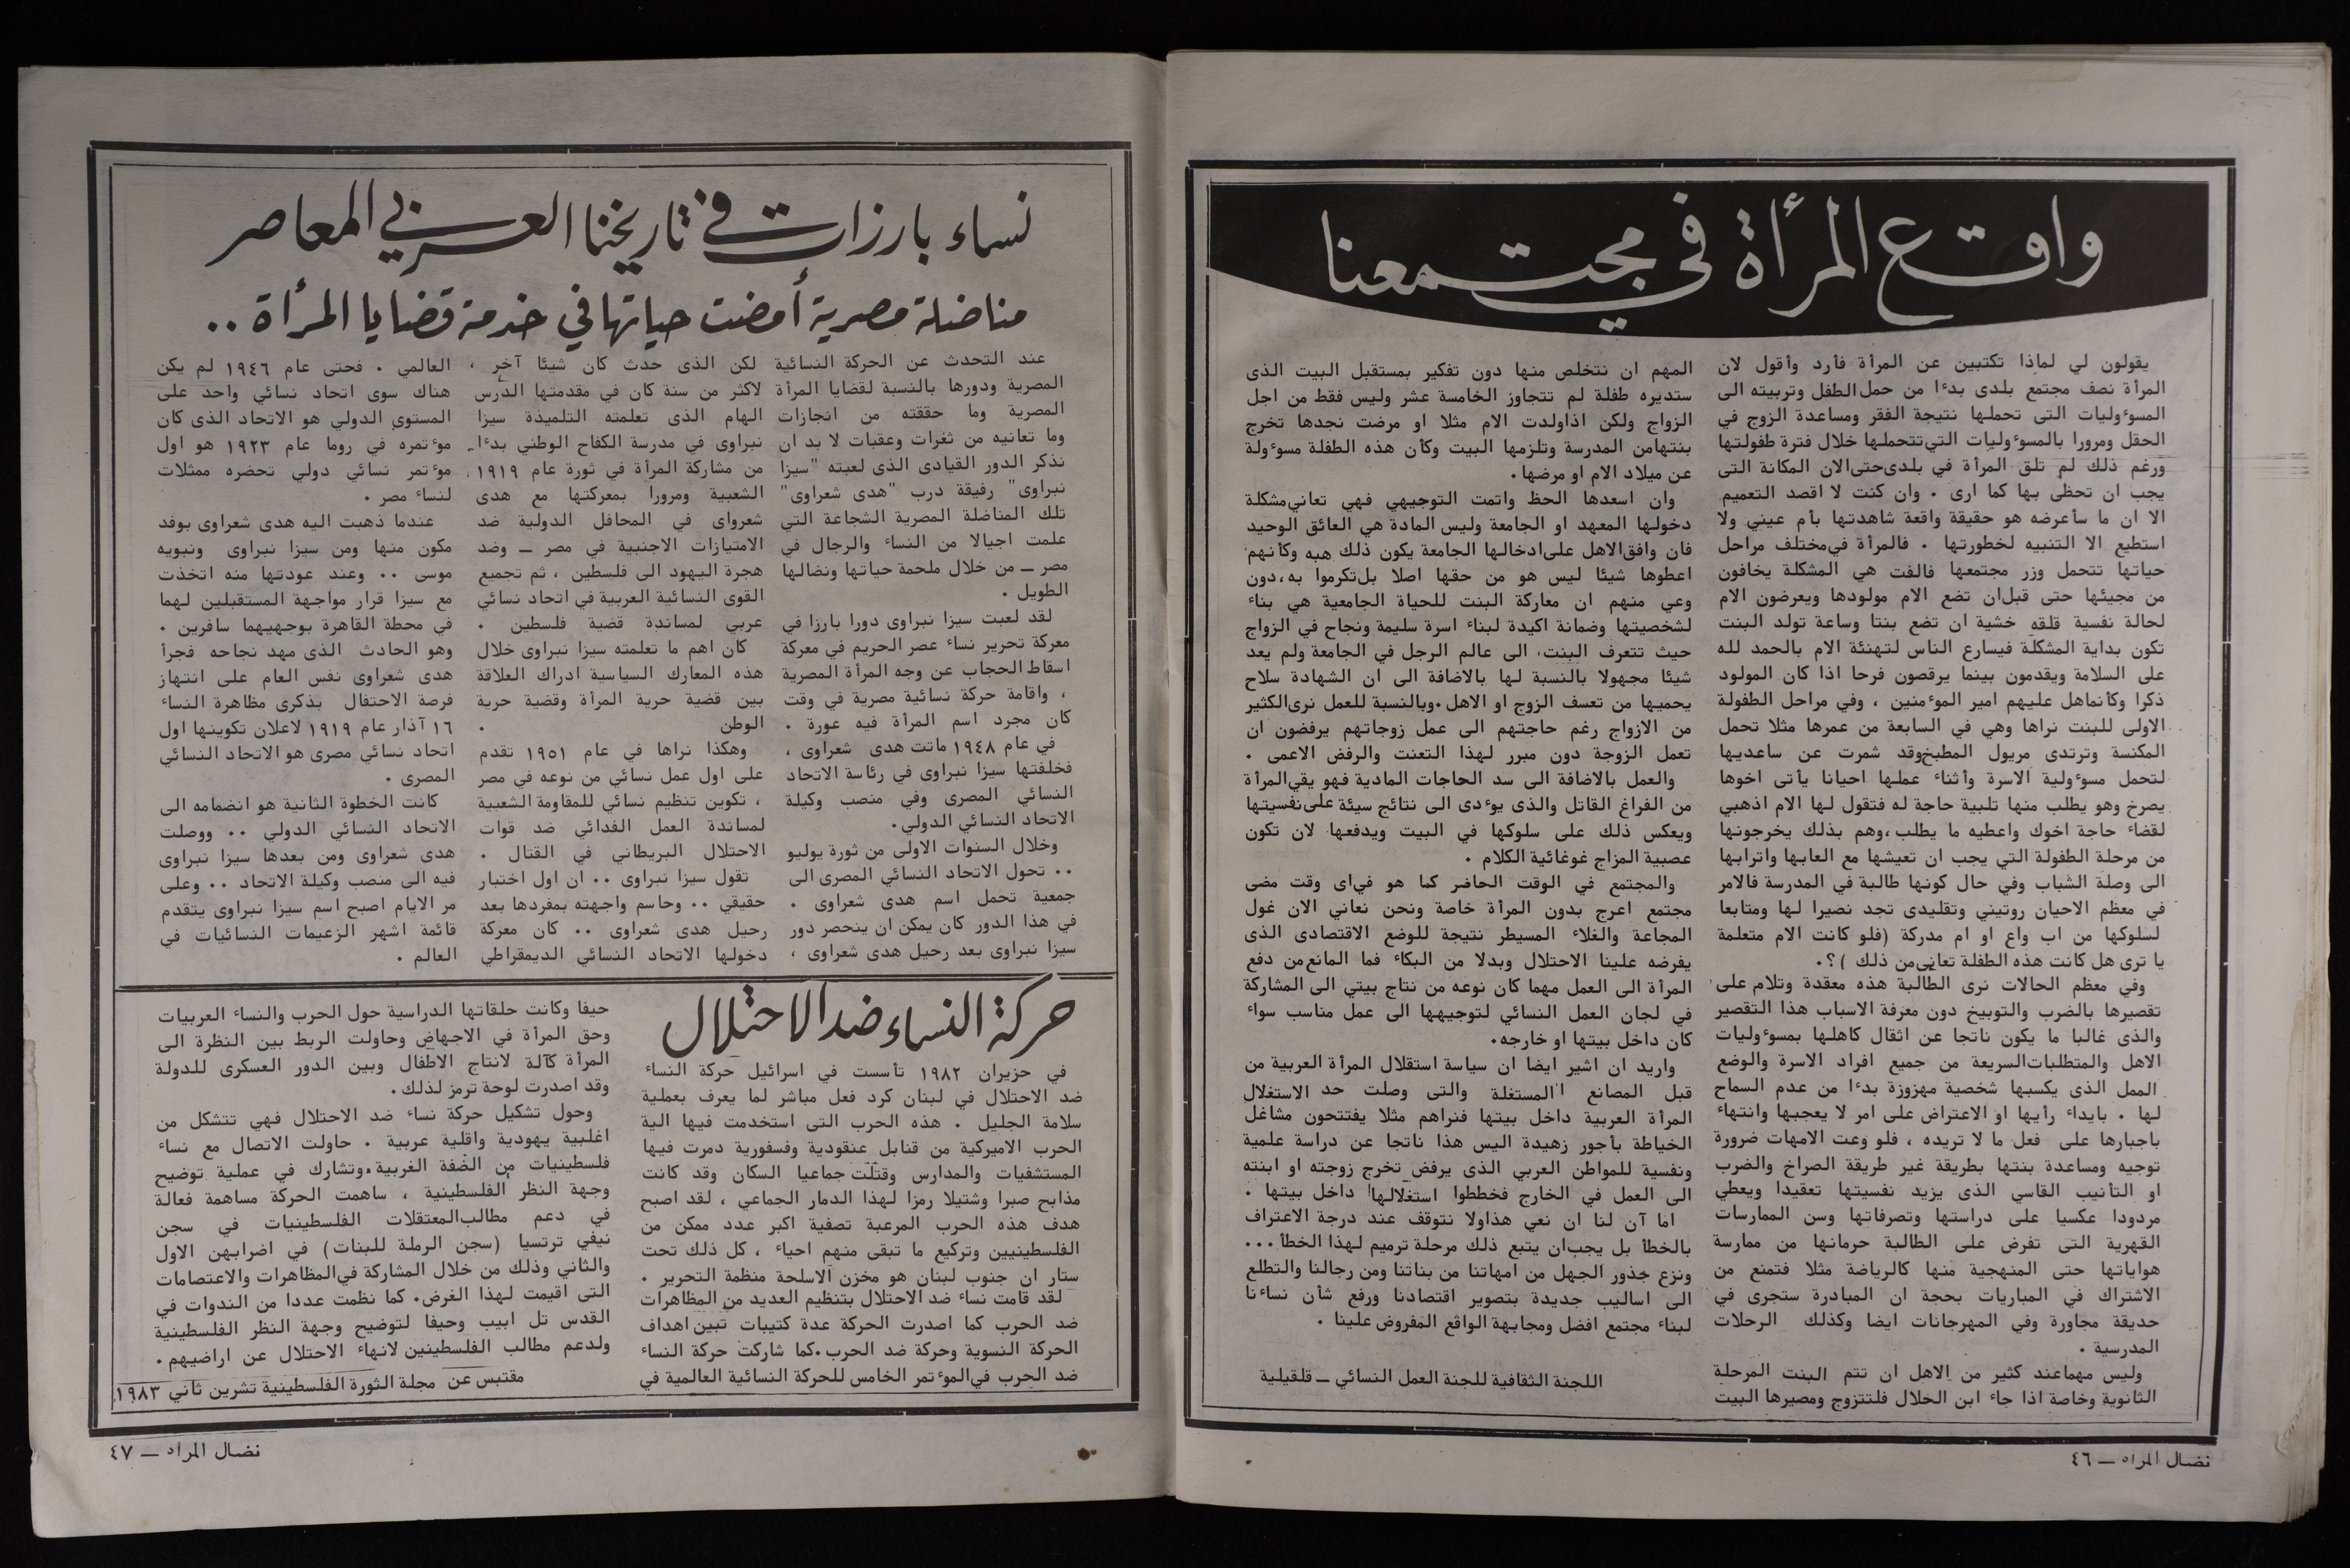 واقع المرأة في مجتمعنا
يقولون لي لماذا تكتبين عن المرأة فأرد وأقول لان
المرأة نصف مجتمع بلدى بدءا من حمل الطفل وتربيته الى
المسوءوليات التى تحملها نتيجة الفقر ومساعدة الزوج في
الحقل ومرورا بالمسوءوليات التي تتحملها خلال فترة طفولتها
ورغم ذلك لم تلق المرأة في بلدى حتى الان المكانة التى
يجب ان تحظى بها كما ارى . وان كنت لا اقصد التعميم
الا ان ما سأعرضه هو حقيقة واقعة شاهدتها بأم عيني ولا
استطيع الا التنبيه لخطورتها . فالمرأة في مختلف مراحل
حياتها تتحمل وزر مجتمعها فالفت هي المشكلة يخافون
من مجيئها حتى قبل ان تضع الام مولودها ويعرضون الام
لحالة نفسية قلقه خشية ان تضع بنتا وساعة تولد البنت
تكون بداية المشكلة فيسارع الناس لتهنئة الام بالحمد لله
على السلامة ويقدمون بينما يرقصون فرحا اذا كان المولود
ذكرا وكأنماهل عليهم امير الموءمنين ، وفي مراحل الطفولة
الاولى للبنت نراها وهي في السابعة من عمرها مثلا تحمل
المكنسة وترتدى مريول المطبخ وقد شمرت عن ساعديها
لتحمل مسوءولية الاسرة وأثناء عملها احيانا يأتى اخوها
يصرخ وهو يطلب منها تلبية حاجة له فتقول لها الام اذهبي
لقضاء حاجة اخوك واعطيه ما يطلب ،وهم بذلك يخرجونها
من مرحلة الطفولة التي يجب ان تعيشها مع العابها واترابها
الى وصلة الشباب وفي حال كونها طالبة في المدرسة فالامر
في معظم الاحيان روتيني وتقليدى تجد نصيرا لها ومتابعا
لسلوكها من اب واع او ام مدركة (فلو كانت الام متعلمة
يا ترى هل كانت هذه الطفلة تعاني من ذلك )؟.
وفي معظم الحالات نرى الطالبة هذه معقدة وتلام على
تقصيرها بالضرب والتوبيخ دون معرفة الاسباب هذا التقصير
والذى غالبا ما يكون ناتجا عن اثقال كاهلها بمسوءوليات
الاهل والمتطلبات السريعة من جميع افراد الاسرة والوضع
الممل الذى يكسبها شخصية مهزوزة بدءا من عدم السماح
لها . بايداء رأيها او الاعتراض على امر لا يعجبها وانتهاء
باجبارها على فعل ما لا تريده ، فلو وعت الامهات ضرورة
توجيه ومساعدة بنتها بطريقة غير طريقة الصراخ والضرب
او التأنيب القاسي الذى يزيد نفسيتها تعقيدا ويعطي
مردودا عكسيا على دراستها وتصرفاتها وسن الممارسات
القهرية التى تفرض على الطالبة حرمانها من ممارسة
هواياتها حتى المنهجية منها كالرياضة مثلا فتمنع من
الاشتراك في المباريات بحجة ان المبادرة ستجرى في
حديقة مجاورة وفي المهرجانات ايضا وكذلك الرحلات
المدرسية .
وليس مهماعند كثير من الاهل ان تتم البنت المرحلة
الثانوية وخاصة اذا جاء ابن الحلال فلتتزوج ومصيرها البيت
المهم ان نتخلص منها دون تفكير بمستقبل البيت الذى
ستديره طفلة لم تتجاوز الخامسة عشر وليس فقط من اجل
الزواج ولكن اذاولدت الام مثلا او مرضت نجدها تخرج
بنتهامن المدرسة وتلزمها البيت وكأن هذه الطفلة مسوءولة
عن ميلاد الام او مرضها.
وان اسعدها الحظ واتمت التوجيهي فهي تعاني مشكلة
دخولها المعهد او الجامعة وليس المادة هي العائق الوحيد
فان وافق الاهل على ادخالها الجامعة يكون ذلك هبه وكأنهم
اعطوها شيئا ليس هو من حقها اصلا بل تكرموا به ،دون
وعي منهم ان معاركة البنت للحياة الجامعية هي بناء
لشخصيتها وضمانة اكيدة لبناء اسرة سليمة ونجاح في الزواج
حيث تتعرف البنت، الى عالم الرجل في الجامعة ولم يعد
شيئا مجهولا بالنسبة لها بالاضافة الى ان الشهادة سلاح
يحميها من تعسف الزوج او الاهل .وبالنسبة للعمل نرى الكثير
من الازواج رغم حاجتهم الى عمل زوجاتهم يرفضون ان
تعمل الزوجة دون مبرر لهذا التعنت والرفض الاعمى .
والعمل بالاضافة الى سد الحاجات المادية فهو يقي المرأة
من الفراغ القاتل والذى يوءدى الى نتائج سيئة على نفسيتها
ويعكس ذلك على سلوكها في البيت ويدفعها لان تكون
عصبية المزاج غوغائية الكلام .
والمجتمع في الوقت الحاضر كما هو في اى وقت مضى
مجتمع اعرج بدون المرأة خاصة ونحن نعاني الان غول
المجاعة والغلاء المسيطر نتيجة للوضع الاقتصادى الذى
يفرضه علينا الاحتلال وبدلا من البكاء فما المانع من دفع
المرأة الى العمل مهما كان نوعه من نتاج بيتي الى المشاركة
في لجان العمل النسائي لتوجيهها الى عمل مناسب سواء
كان داخل بيتها او خارجه.
واريد ان اشير ايضا ان سياسة استقلال المرأة العربية من
قبل المصانع المستغلة والتى وصلت حد الاستغلال
المرأة العربية داخل بيتها فنراهم مثلا يفتتحون مشاغل
الخياطة بأجور زهيدة اليس هذا ناتجا عن دراسة علمية
ونفسية للمواطن العربي الذى يرفض تخرج زوجته او ابنته
الى العمل في الخارج فخططوا استغلالها داخل بيتها .
اما آن لنا ان نعي هذاولا نتوقف عند درجة الاعتراف
بالخطأ بل يجب ان يتبع ذلك مرحلة ترميم لهذا الخطأ ...
ونزع جذور الجهل من امهاتنا من بناتنا ومن رجالنا والتطلع
الى اساليب جديدة بتصوير اقتصادنا ورفع شأن نساءنا
لبناء مجتمع افضل ومجابهة الواقع المفروض علينا .
اللجنة الثقافية للجنة العمل النسائي ــ قلقيلية
نضال المرأه ــ ٤٦
نساء بارزات في تاريخنا العربي المعاصر
مناضلة مصرية أمضت حياتها في خدمة قضايا المرأة ..
عند التحدث عن الحركة النسائية
المصرية ودورها بالنسبة لقضايا المرأة
المصرية وما حققته من انجازات
وما تعانيه من ثغرات وعقبات لا بد ان
نذكر الدور القيادى الذى لعبته "سيزا
نبراوى" رفيقة درب "هدى شعراوى"
تلك المناضلة المصرية الشجاعة التي
علمت اجيالا من النساء والرجال في
مصر ــ من خلال ملحمة حياتها ونضالها
الطويل .
لقد لعبت سيزا نبراوى دورا بارزا في
معركة تحرير نساء عصر الحريم في معركة
اسقاط الحجاب عن وجه المرأة المصرية
، واقامة حركة نسائية مصرية في وقت
كان مجرد اسم المرأة فيه عورة .
في عام ١٩٤٨ ماتت هدى شعراوى ،
فخلفتها سيزا نبراوى في رئاسة الاتحاد
النسائي المصرى وفي منصب وكيلة
الاتحاد النسائي الدولي.
وخلال السنوات الاولى من ثورة يوليو
.. تحول الاتحاد النسائي المصرى الى
جمعية تحمل اسم هدى شعراوى .
في هذا الدور كان يمكن ان ينحصر دور
سيزا نبراوى بعد رحيل هدى شعراوى ،
لكن الذى حدث كان شيئا آخر ،
لاكثر من سنة كان في مقدمتها الدرس
الهام الذى تعلمته التلميذة سيزا
نبراوى في مدرسة الكفاح الوطني بدءا
من مشاركة المرأة في ثورة عام ١٩١٩
الشعبية ومرورا بمعركتها مع هدى
شعرواى في المحافل الدولية ضد
الامتيازات الاجنبية في مصر ــ وضد
هجرة اليهود الى فلسطين ، ثم تجميع
القوى النسائية العربية في اتحاد نسائي
عربي لمساندة قضية فلسطين .
كان اهم ما تعلمته سيزا نبراوى خلال
هذه المعارك السياسية ادراك العلاقة
بين قضية حرية المرأة وقضية حرية
الوطن .
وهكذا نراها في عام ١٩٥١ تقدم
على اول عمل نسائي من نوعه في مصر
، تكوين تنظيم نسائي للمقاومة الشعبية
لمساندة العمل الفدائي ضد قوات
الاحتلال البريطاني في القتال .
تقول سيزا نبراوى .. ان اول اختبار
حقيقي .. وحاسم واجهته بمفردها بعد
رحيل هدى شعراوى .. كان معركة
دخولها الاتحاد النسائي الديمقراطي
العالمي . فحتى عام ١٩٤٦ لم يكن
هناك سوى اتحاد نسائي واحد على
المستوى الدولي هو الاتحاد الذى كان
موءتمره في روما عام ١٩٢٣ هو اول
موءتمر نسائي دولي تحضره ممثلات
لنساء مصر .
عندما ذهبت اليه هدى شعراوى بوفد
مكون منها ومن سيزا نبراوى ونبويه
موسى .. وعند عودتها منه اتخذت
مع سيزا قرار مواجهة المستقبلين لهما
في محطة القاهرة بوجهيهما سافرين .
وهو الحادث الذى مهد نجاحه فجرأ
هدى شعراوى نفس العام على انتهاز
فرصة الاحتفال بذكرى مظاهرة النساء
١٦ آذار عام ١٩١٩ لاعلان تكوينها اول
اتحاد نسائي مصرى هو الاتحاد النسائي
المصرى .
كانت الخطوة الثانية هو انضمامه الى
الاتحاد النسائي الدولي .. ووصلت
هدى شعراوى ومن بعدها سيزا نبراوى
فيه الى منصب وكيلة الاتحاد .. وعلى
مر الايام اصبح اسم سيزا نبراوى يتقدم
قائمة اشهر الزعيمات النسائيات في
العالم .
حركة النساء ضد الاحتلال
في حزيران ١٩٨٢ تأسست في اسرائيل حركة النساء
ضد الاحتلال في لبنان كرد فعل مباشر لما يعرف بعملية
سلامة الجليل . هذه الحرب التى استخدمت فيها الية
الحرب الاميركية من قنابل عنقودية وفسفورية دمرت فيها
المستشفيات والمدارس وقتلت جماعيا السكان وقد كانت
مذابح صبرا وشتيلا رمزا لهذا الدمار الجماعي ، لقد اصبح
هدف هذه الحرب المرعبة تصفية اكبر عدد ممكن من
الفلسطينيين وتركيع ما تبقى منهم احياء ، كل ذلك تحت
ستار ان جنوب لبنان هو مخزن الاسلحة منظمة التحرير .
لقد قامت نساء ضد الاحتلال بتنظيم العديد من المظاهرات
ضد الحرب كما اصدرت الحركة عدة كتيبات تبين اهداف
الحركة النسوية وحركة ضد الحرب .كما شاركت حركة النساء
ضد الحرب في الموءتمر الخامس للحركة النسائية العالمية في
حيفا وكانت حلقاتها الدراسية حول الحرب والنساء العربيات
وحق المرأة في الاجهاض وحاولت الربط بين النظرة الى
المرأة كآلة لانتاج الاطفال وبين الدور العسكرى للدولة
وقد اصدرت لوحة ترمز لذلك.
وحول تشكيل حركة نساء ضد الاحتلال فهي تتشكل من
اغلبية يهودية واقلية عربية . حاولت الاتصال مع نساء
فلسطينيات من الضفة الغربية .وتشارك في عملية توضيح
وجهة النظر الفلسطينية ، ساهمت الحركة مساهمة فعالة
في دعم مطالب المعتقلات الفلسطينيات في سجن
نيفي ترتسيا (سجن الرملة للبنات) في اضرابهن الاول
والثاني وذلك من خلال المشاركة في المظاهرات والاعتصامات
التى اقيمت لهذا الغرض. كما نظمت عددا من الندوات في
القدس تل ابيب وحيفا لتوضيح وجهة النظر الفلسطينية
ولدعم مطالب الفلسطينين لانهاء الاحتلال عن اراضيهم.
مقتبس عن مجلة الثورة الفلسطينية تشرين ثاني ١٩٨٣
نضال المرأه ــ ٤٧